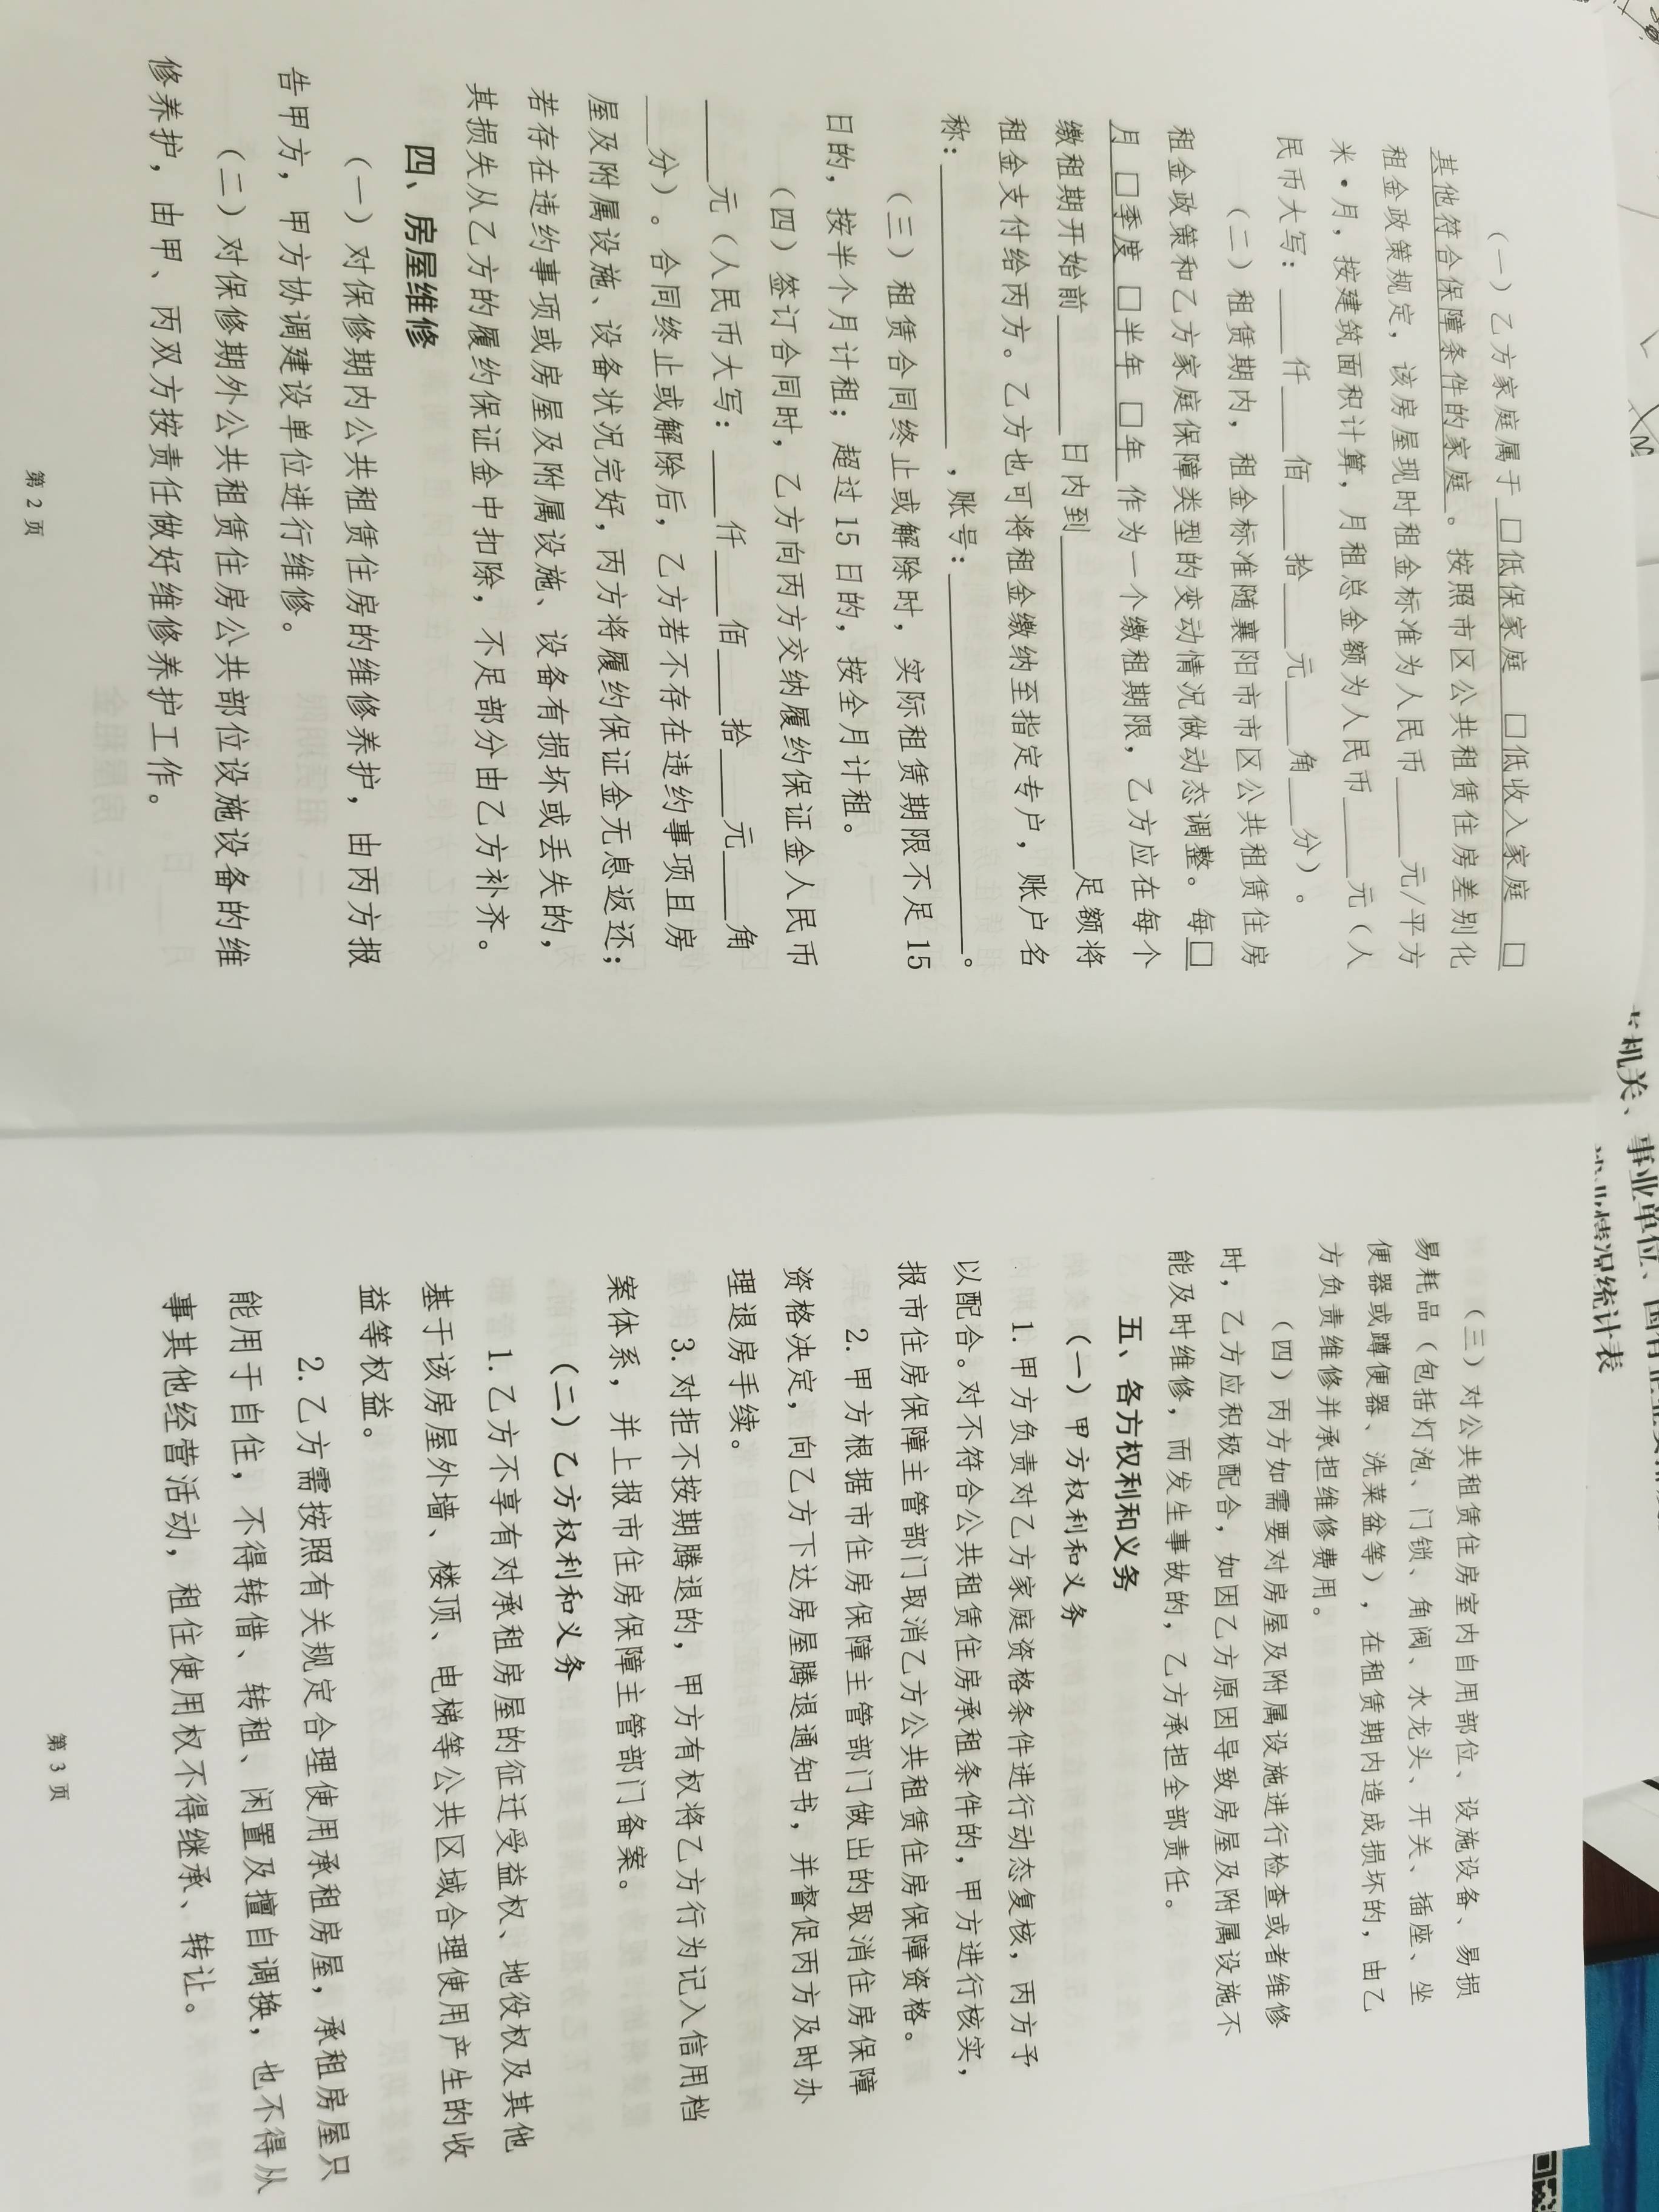 （一）乙方家庭属于 □低保家庭 □低收入家庭 □
其他符合保障条件的家庭 。按照市区公共租赁住房差别化
租金政策规定，该房屋现时租金标准为人民币____元/平方
米·月，按建筑面积计算，月租总金额为人民币____元（人
民币大写：____仟____佰____拾____元____角____分）。
（二）租赁期内，租金标准随襄阳市市区公共租赁住房
租金政策和乙方家庭保障类型的变动情况做动态调整。每□
月 □季度 □半年 □年 作为一个缴租期限，乙方应在每个
缴租期开始前________日内到________________________足额将
租金支付给丙方。乙方也可将租金缴纳至指定专户，账户名
称：____________________，账号：__________________________。
（三）租赁合同终止或解除时，实际租赁期限不足 15
日的，按半个月计租；超过 15 日的，按全月计租。
（四）签订合同时，乙方向丙方交纳履约保证金人民币
______元（人民币大写：____仟____佰____拾____元____角
____分）。合同终止或解除后，乙方若不存在违约事项且房
屋及附属设施、设备状况完好，丙方将履约保证金无息返还；
若存在违约事项或房屋及附属设施、设备有损坏或丢失的，
其损失从乙方的履约保证金中扣除，不足部分由乙方补齐。
四、房屋维修
（一）对保修期内公共租赁住房的维修养护，由丙方报
告甲方，甲方协调建设单位进行维修。
（二）对保修期外公共租赁住房公共部位设施设备的维
修养护，由甲、丙双方按责任做好维修养护工作。
第 2 页
（三）对公共租赁住房室内自用部位、设施设备、易损
易耗品（包括灯泡、门锁、角阀、水龙头、开关、插座、坐
便器或蹲便器、洗菜盆等），在租赁期内造成损坏的，由乙
方负责维修并承担维修费用。
（四）丙方如需要对房屋及附属设施进行检查或者维修
时，乙方应积极配合，如因乙方原因导致房屋及附属设施不
能及时维修，而发生事故的，乙方承担全部责任。
五、各方权利和义务
（一）甲方权利和义务
1. 甲方负责对乙方家庭资格条件进行动态复核，丙方予
以配合。对不符合公共租赁住房承租条件的，甲方进行核实，
报市住房保障主管部门取消乙方公共租赁住房保障资格。
2. 甲方根据市住房保障主管部门做出的取消住房保障
资格决定，向乙方下达房屋腾退通知书，并督促丙方及时办
理退房手续。
3. 对拒不按期腾退的，甲方有权将乙方行为记入信用档
案体系，并上报市住房保障主管部门备案。
（二）乙方权利和义务
1. 乙方不享有对承租房屋的征迁受益权、地役权及其他
基于该房屋外墙、楼顶、电梯等公共区域合理使用产生的收
益等权益。
2. 乙方需按照有关规定合理使用承租房屋，承租房屋只
能用于自住，不得转借、转租、闲置及擅自调换，也不得从
事其他经营活动，租住使用权不得继承、转让。
第 3 页
机关、事业单位、
情况统计表